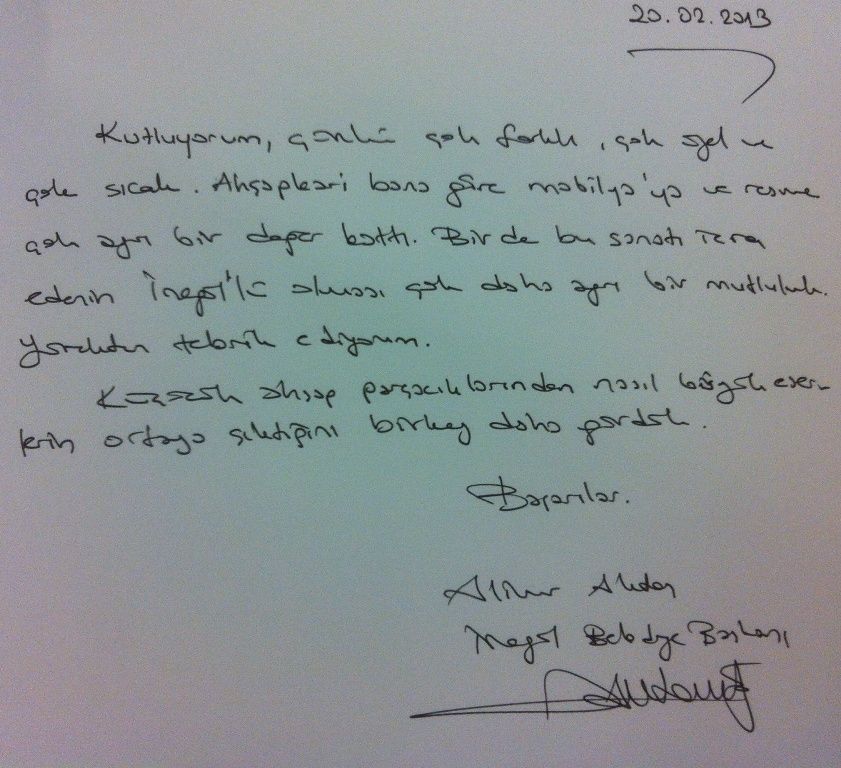 20.02.2013
Kutluyorum, çünkü çok farklı, çok özel ve
çok sıcak. Ahşapları bana göre mobilya'ya ve resme
çok ayrı bir değer kattı. Bir de bu sanatı icra
edenin İnegöl'lü olması çok daha ayrı bir mutluluk.
Yürekten tebrik ediyorum.
Küçücük ahşap parçacıklarından nasıl büyük eser-
lerin ortaya çıktığını birkez daha gördük.
Başarılar.
Alinur Aktaş
İnegöl Belediye Başkanı